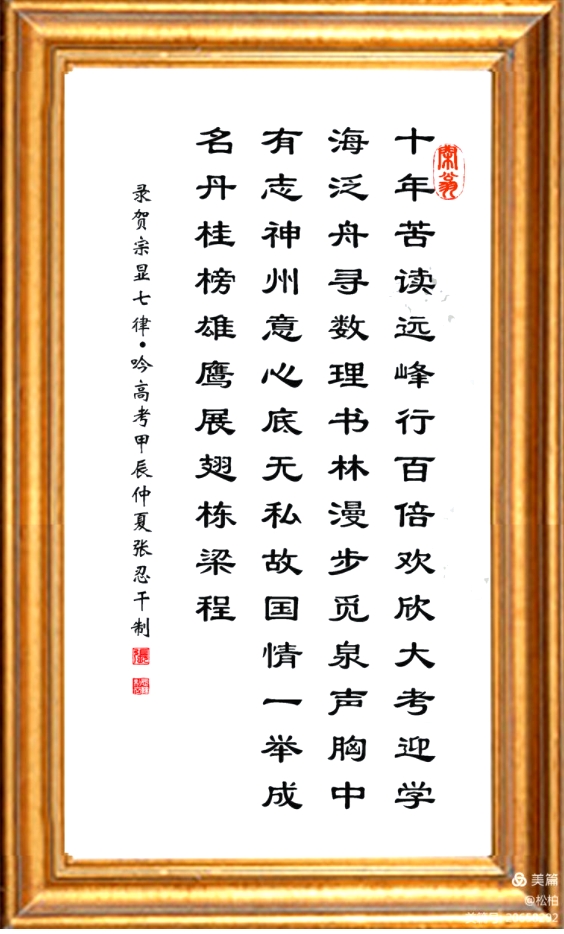 十年苦读远峰行百倍欢欣大考迎学
海泛舟寻数理书林漫步觅泉声胸中
有志神州意心底无私故国情一举成
名丹桂榜雄鹰展翅栋梁程
录贺宗显七律•吟高考甲辰仲夏张忍干制
美篇
@松柏